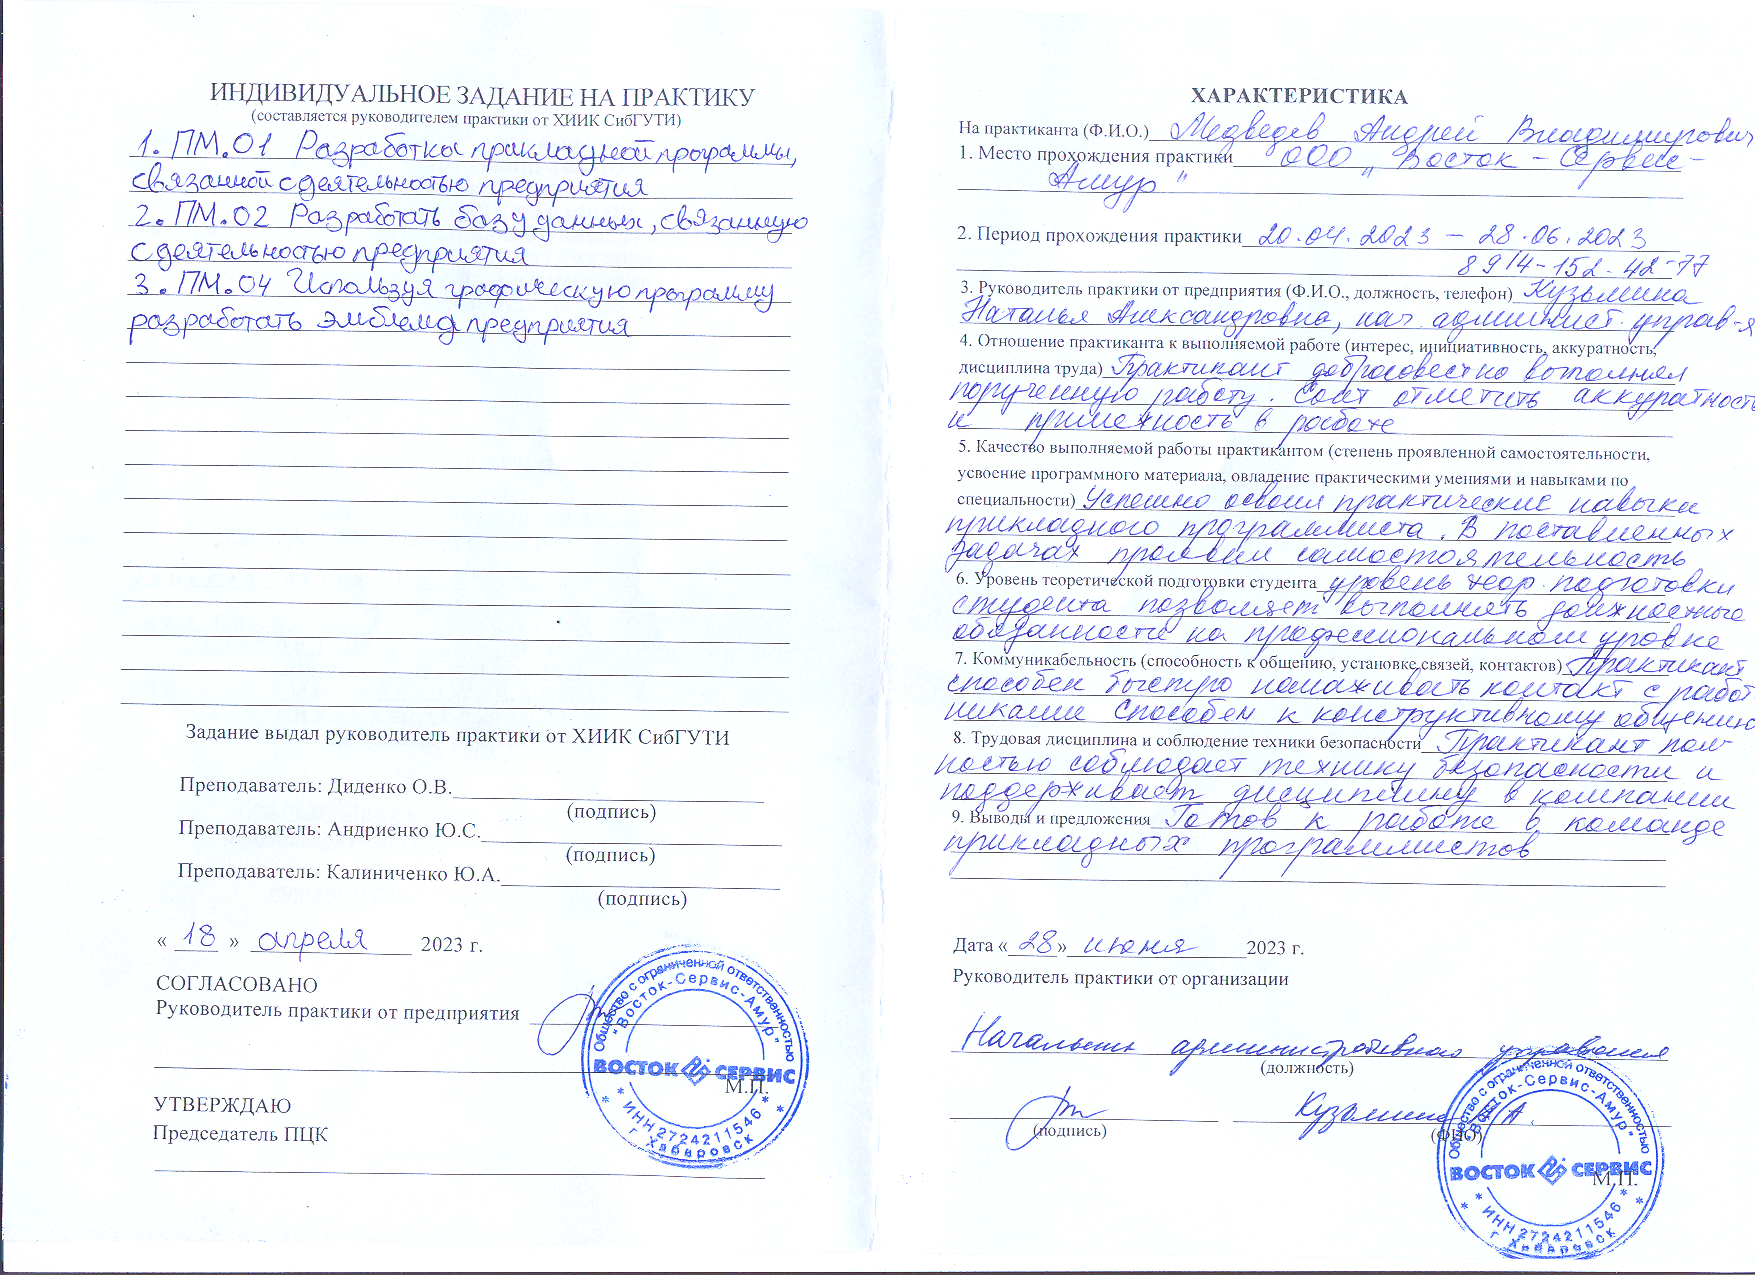 ИНДИВИДУАЛЬНОЕ ЗАДАНИЕ НА ПРАКТИКУ
(составляется руководителем практики от ХИИК СибГУТИ)
1. ПМ.01 Разработка прикладной программы,
связанной с деятельностью предприятия
2. ПМ.02 Разработать базу данных, связанную
с деятельностью предприятия
3. ПМ.04 Используя графическую программу
разработать эмблему предприятия
Задание выдал руководитель практики от ХИИК СибГУТИ
Преподаватель: Диденко О.В.
(подпись)
Преподаватель: Андриенко Ю.С.
(подпись)
Преподаватель: Калиниченко Ю.А.
(подпись)
« 18 » апреля 2023 г.
СОГЛАСОВАНО
Руководитель практики от предприятия
М.П.
УТВЕРЖДАЮ
Председатель ПЦК
Общество с ограниченной ответственностью
"Восток-Сервис-Амур"
ВОСТОК СЕРВИС
* ИНН 2724211546 *
* г. Хабаровск *
ХАРАКТЕРИСТИКА
На практиканта (Ф.И.О.) Медведев Андрей Владимирович
1. Место прохождения практики ООО „Восток - Сервис -
Амур"
2. Период прохождения практики 20.04.2023 - 28.06.2023
8914-152-42-77
3. Руководитель практики от предприятия (Ф.И.О., должность, телефон) Кузьмина
Наталья Александровна, нач. админист. управ-я
4. Отношение практиканта к выполняемой работе (интерес, инициативность, аккуратность,
дисциплина труда) Практикант добросовестно выполнял
порученную работу. Стоит отметить аккуратность
и прилежность в работе
5. Качество выполняемой работы практикантом (степень проявленной самостоятельности,
усвоение программного материала, овладение практическими умениями и навыками по
специальности) Успешно освоил практические навыки
прикладного программиста. В поставленных
задачах проявил самостоятельность
6. Уровень теоретической подготовки студента уровень теор. подготовки
студента позволяет выполнять должностные
обязанности на профессиональном уровне
7. Коммуникабельность (способность к общению, установке связей, контактов) Практикант
способен быстро налаживать контакт с работ
никами способен к конструктивному общению
8. Трудовая дисциплина и соблюдение техники безопасности Практикант пол-
ностью соблюдает технику безопасности и
поддерживает дисциплину в компании
9. Выводы и предложения Готов к работе в команде
прикладных программистов
Дата « 28 » июня 2023 г.
Руководитель практики от организации
Начальник административного управления
(должность)
Кузьмина Н.А.
(подпись) (ФИО)
М.П.
Общество с ограниченной ответственностью
"Восток-Сервис-Амур"
ВОСТОК СЕРВИС
* ИНН 2724211546 *
* г. Хабаровск *